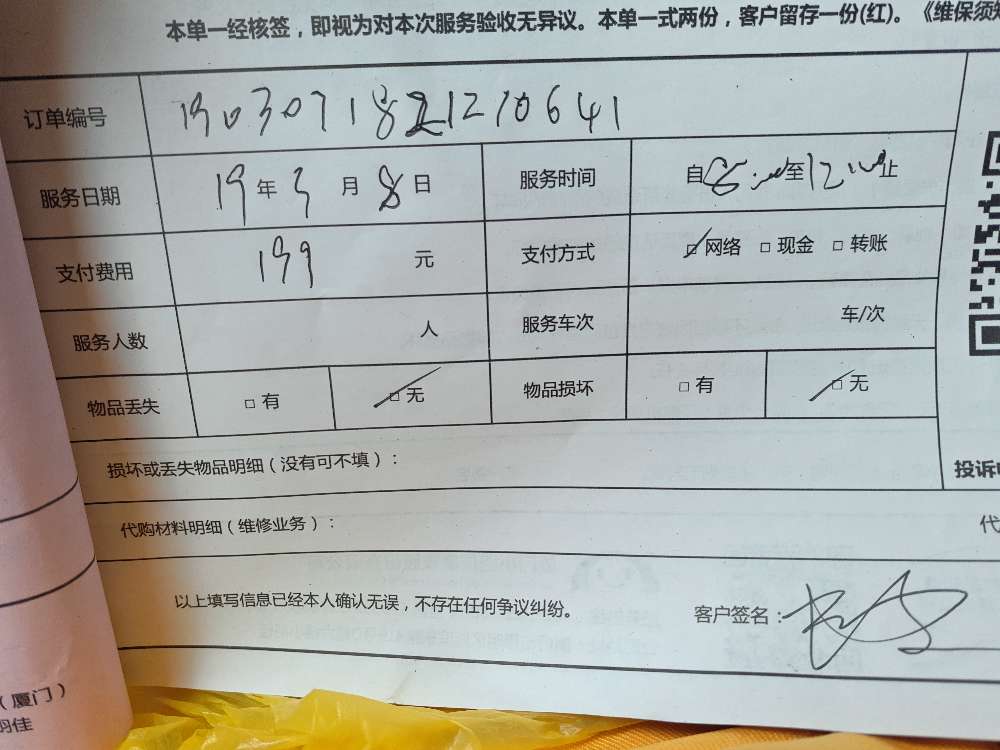 本单一经核签，即视为对本次服务验收无异议。本单一式两份，客户留存一份(红)。《维保须知
订单编号 190307182121270641
服务日期 19年3月8日 服务时间 自8:00至12:00止
支付费用 199 元 支付方式 ☑网络 □现金 □转账
服务人数 人 服务车次 车/次
物品丢失 □有 ☑无 物品损坏 □有 ☑无
损坏或丢失物品明细（没有可不填）：
投诉
代购材料明细（维修业务）：
代
以上填写信息已经本人确认无误，不存在任何争议纠纷。 客户签名：
（厦门）
羽佳